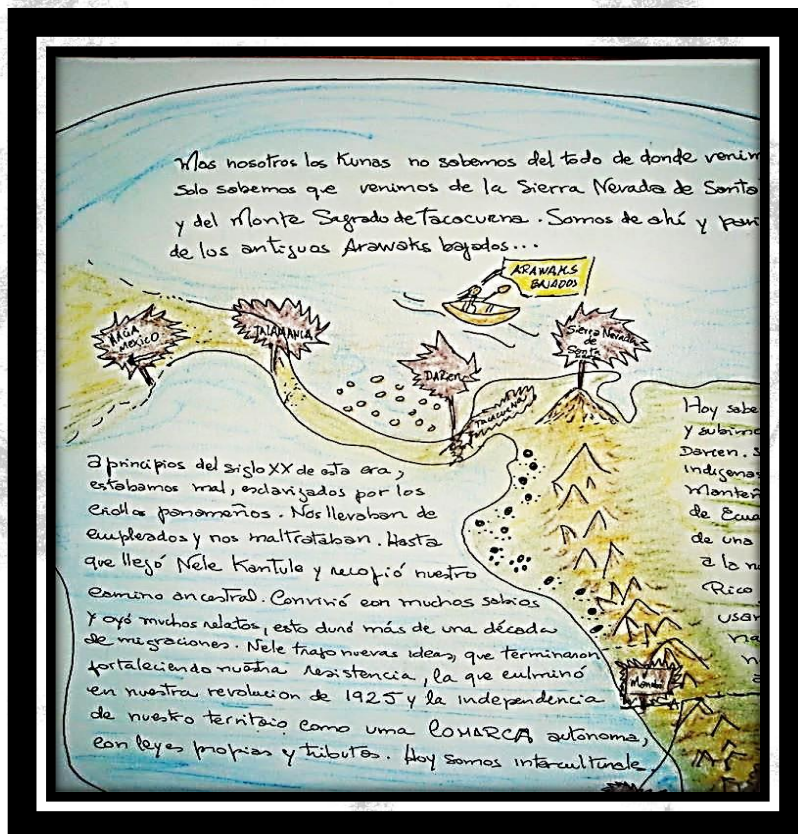 Mas nosotros los Kunas no sabemos del todo de donde venim
Solo sabemos que venimos de la Sierra Nevada de Santa
y del Monte Sagrado de Tacacuena. Somos de ahí y pari
de los antiguos Arawaks bajados...
ARAWAKS
BAJADOS
MAGA
MEXICO
TALAMANCA
DARCEN
TACACUENA
Sierra Nevada
de
Santa
Hoy sabe
y subimo
Darcen. S
Indigenas
Manteñ
de Ecua
de una
a la n
Rico
usar
na
n
a principios del siglo XX de esta era,
estabamos mal, esclavizados por los
criollos panameños. Nos llevaban de
empleados y nos maltrataban. Hasta
que llegó Nele Kantule y recogió nuestro
camino ancestral. Convivió con muchos sabios
y oyó muchos relatos, esto duró más de una década
de migraciones. Nele trajo nuevas ideas, que terminaron
fortaleciendo nuestra resistencia, la que culminó
en nuestra revolucion de 1925 y la independencia
de nuestro territoio como uma COMARCA autonoma,
con leyes propias y tributos. Hoy somos interculturale
Manab